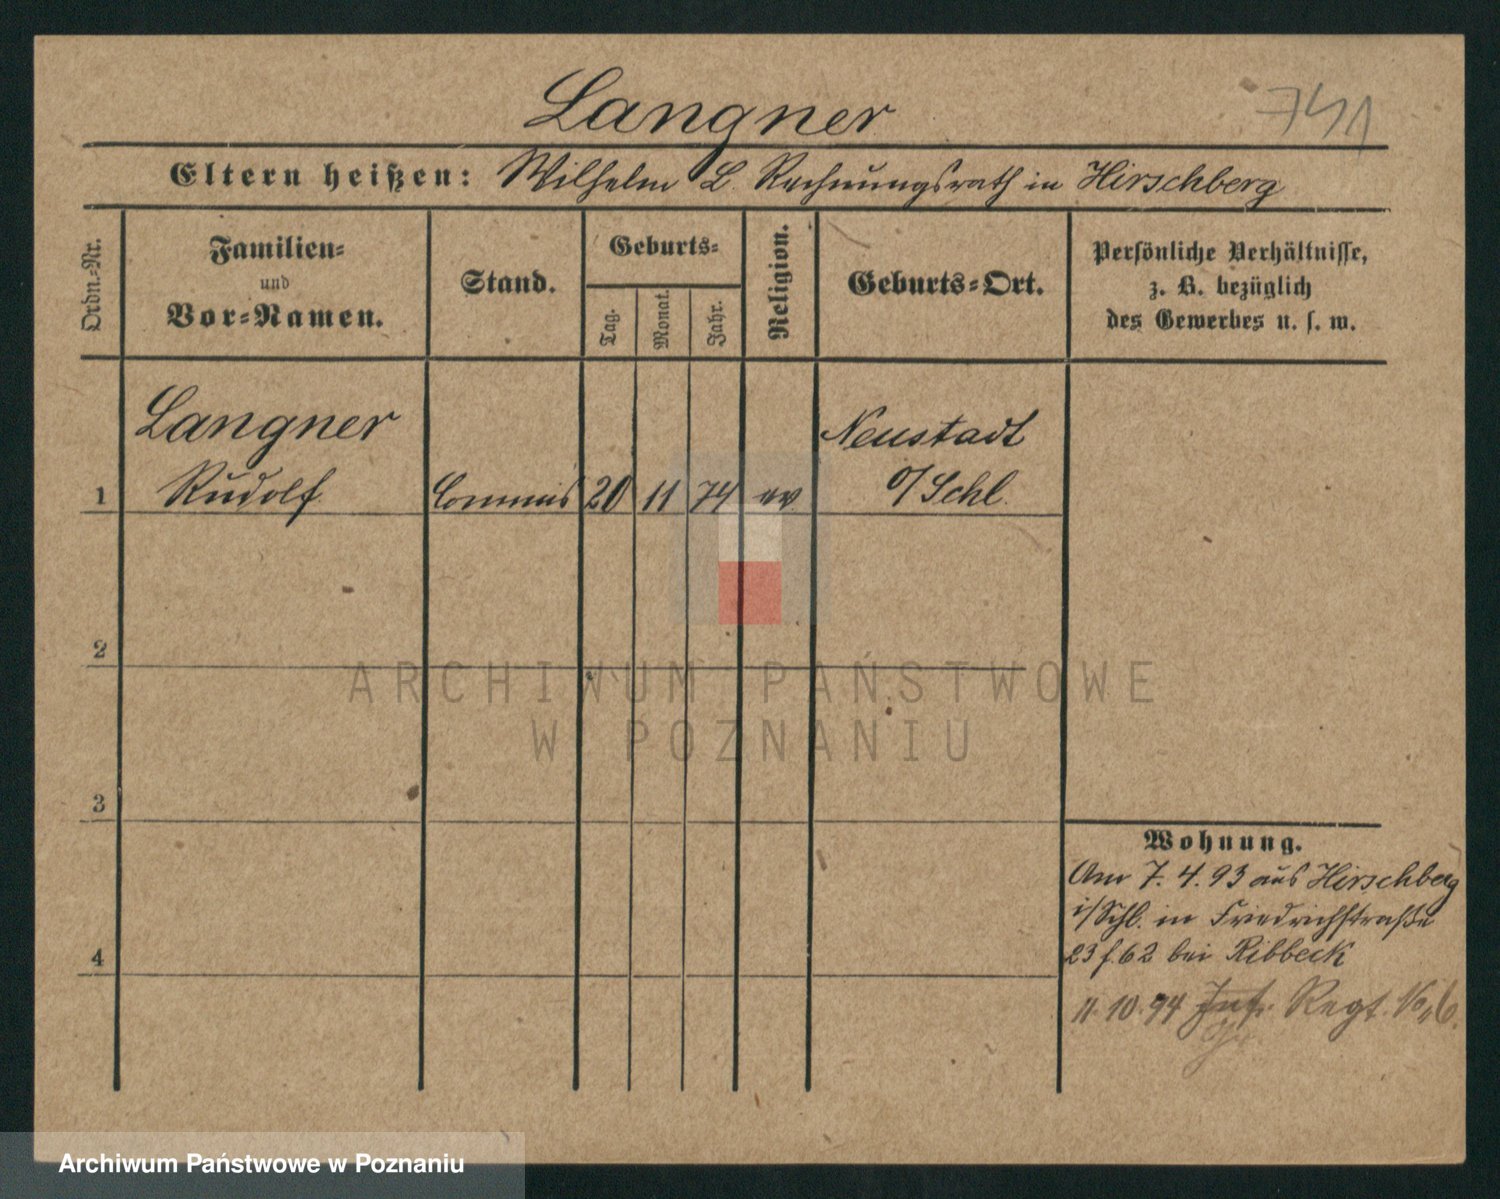 Langner
741
Eltern heißen: Wilhelm L. Rechnungsrath in Hirschberg
Ordn.-Nr.
Familien-
und
Vor-Namen.
Stand.
Geburts-
Tag.
Monat.
Jahr.
Religion.
Geburts-Ort.
Persönliche Verhältnisse,
z. B. bezüglich
des Gewerbes u. s. w.
Langner
Neustadt
1 Rudolf Commis 20 11 74 ev O/Schl.
2
ARCHIWUM PAŃSTWOWE
W POZNANIU
3
Wohnung.
Am 7.4.93 aus Hirschberg
i/Schl. in Friedrichstraße
23 f. 62 bei Ribbeck
4
11.10.94 Regt. No 6.
Archiwum Państwowe w Poznaniu